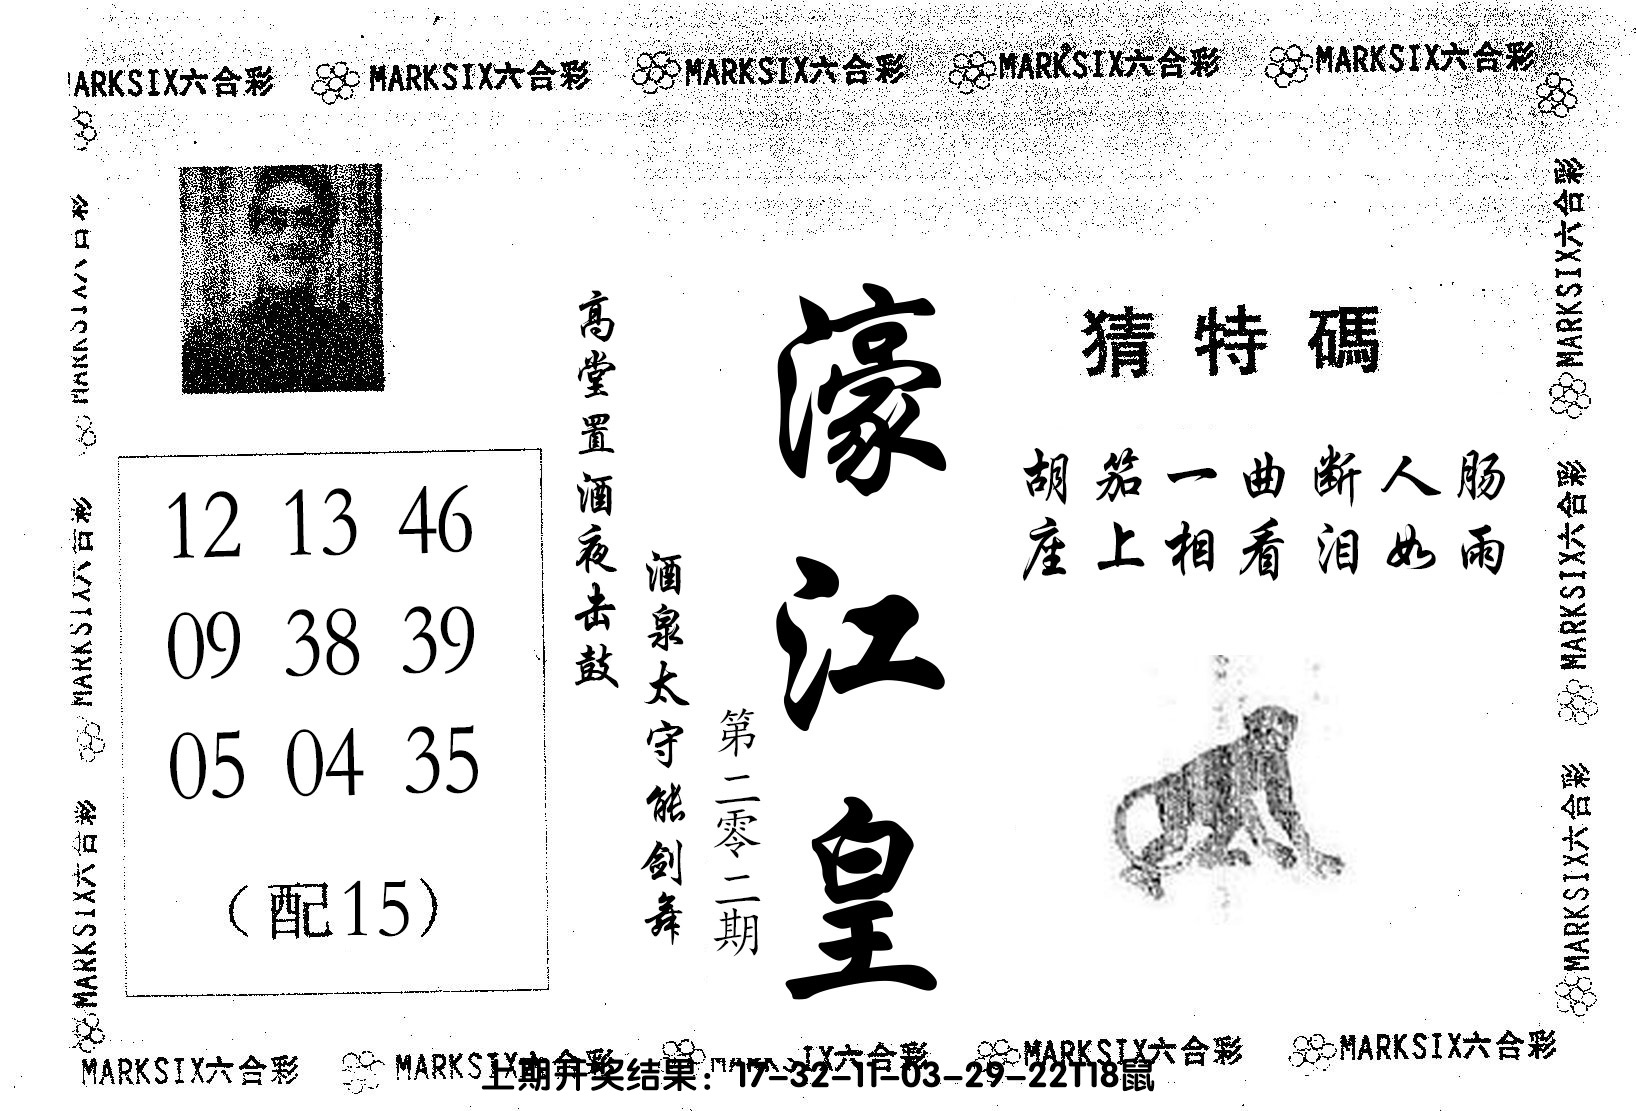 MARKSIX六合彩 MARKSIX六合彩 MARKSIX六合彩 MARKSIX六合彩 MARKSIX六合彩
猜特碼
胡笳一曲断人肠
座上相看泪如雨
濠江皇
第二零二期
酒泉太守能剑舞
高堂置酒夜击鼓
12 13 46
09 38 39
05 04 35
（配15）
MARKSIX六合彩
MARKSIX六合彩
MARKSIX六合彩
MARKSIX六合彩
MARKSIX六合彩
MARKSIX六合彩
MARKSIX六合彩 MARKSIX六合彩 MARKSIX六合彩 MARKSIX六合彩 MARKSIX六合彩
上期开奖结果：17-32-11-03-29-22T18鼠